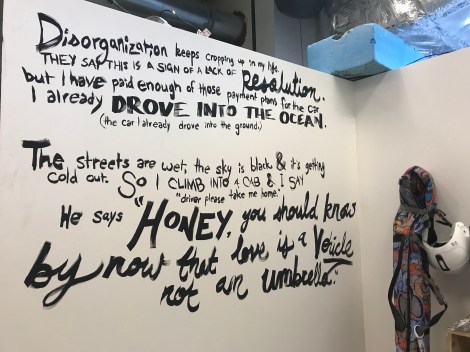 Disorganization keeps cropping up in my life.
THEY SAY THIS IS A SIGN OF A LACK OF Resolution.
but I have paid enough of those payment plans for the car
I already DROVE INTO THE OCEAN.
(the car I already drove into the ground.)
The streets are wet, the sky is black & it's getting
cold out. So I CLIMB INTO A CAB & I SAY
"driver please take me home."
He says "HONEY, you should know
by now that love is a Vehicle
not an umbrella."